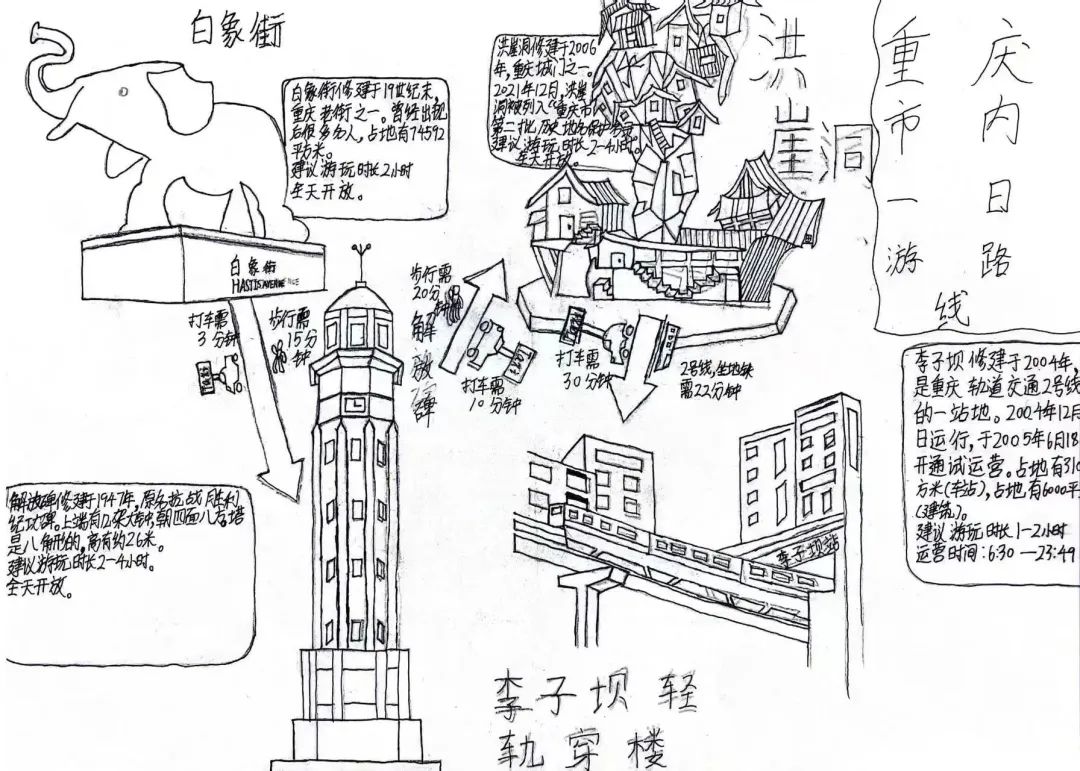 重庆
市内
一日
游路
线
白象街
白象街修建于19世纪末,
重庆老街之一。曾经出现
后很多名人,占地有74592
平方米。
建议游玩时长2小时
全天开放。
白象街
打车需
3分钟
步行需
15分
钟
解放碑
解放碑修建于1947年,原名抗战胜利
纪功碑。上端有 朝四面八
是八角形的,高有约26米。
建议游玩时长2-4小时。
全天开放。
步行需
20分
钟
打车需
10分钟
洪崖洞
洪崖洞修建于2006
年,重庆城门之一。
2021年12月,洪崖
洞被列入“重庆市
第二批历史地名保护
建议游玩时长2-4小时。
全天开放。
打车需
30分钟
2号线,坐地铁
需22分钟
李子坝站
李子坝轻
轨穿楼
李子坝修建于2004年,
是重庆轨道交通2号线
的一站地。2004年12月
日运行,于2005年6月18
开通试运营。占地有310
方米(车站),占地有6000平
(建筑)。
建议游玩时长1-2小时
运营时间:6:30—23:49